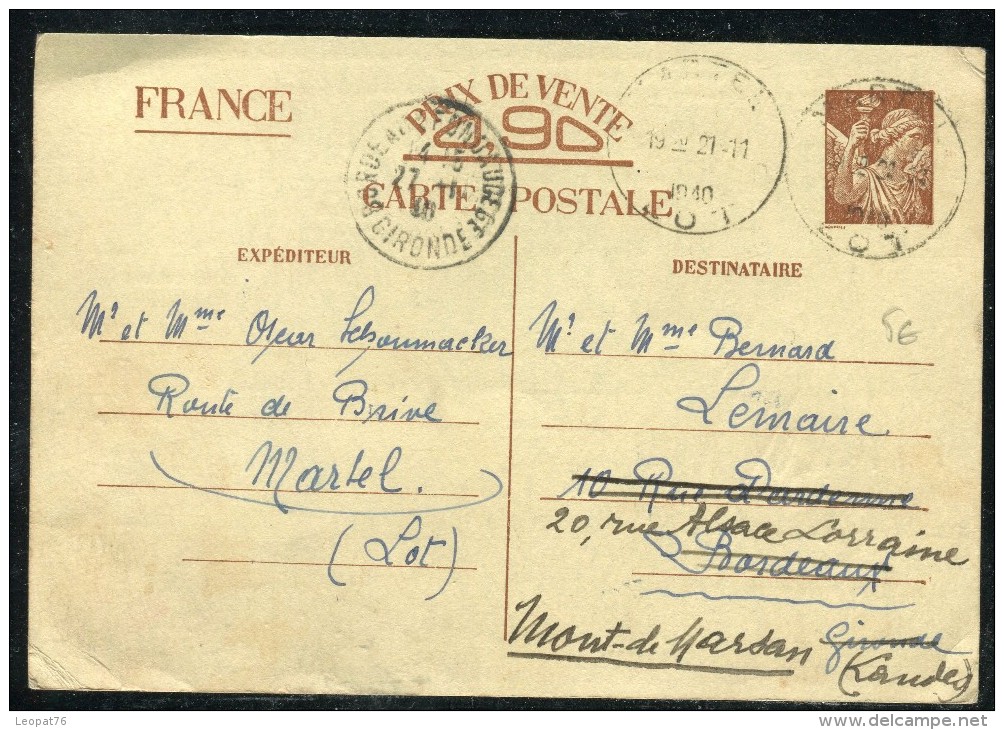 FRANCE
PRIX DE VENTE
0,90
CARTE POSTALE
BORDEAUX
GIRONDE
27 - 11
19 21-11
1940
LOT
EXPÉDITEUR
DESTINATAIRE
Mr et Mme Oscar Schoumacker
Route de Brive
Martel.
(Lot)
5€
Mr et Mme Bernard
Lemaire
10 Rue
20, rue Alsace Lorraine
Bordeaux
Mont-de Marsan Gironde
(Landes)
Leopat76
www.delcampe.net